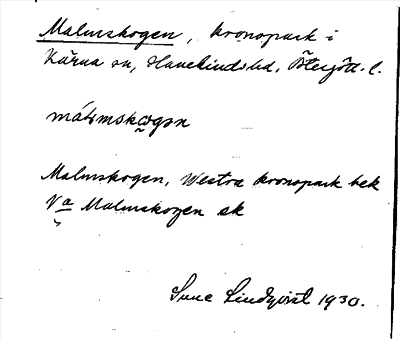 Malmskogen, kronopark i
Kärna sn, Hanekinds hd, Östergötl. l.
málmskogən
Malmskogen, Westra kronopark bek
Va Malmskogen ek
Sune Lindqvist 1930.